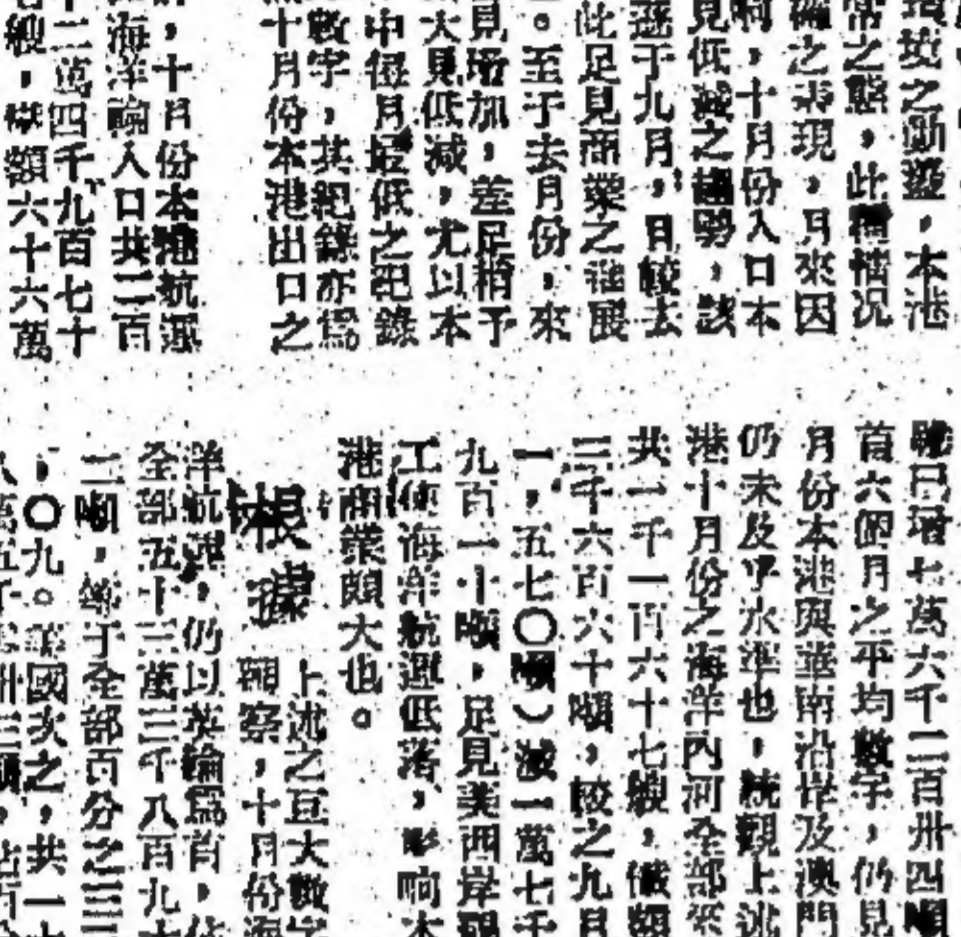 環境之動盪，本港
常之態，此種情况
之表現，月來因
，十月份入口本
見低減之趨勢，該
遜于九月，且較去
此足見商業之發展
。至于去月份，來
見增加，差足稍予
大見低減，尤以本
中個月最低之紀錄
數字，其紀錄亦爲
十月份本港出口之
，十月份本港航運
海洋輪入口共二百
十二萬四千九百七十
艘，噸額六十六萬
增七萬六千二百卅四噸
首六個月之平均數字，仍見
月份本港與華南沿岸及澳門
仍未及平水準也，統觀上述
港十月份之海洋內河全部來
共二千一百六十七艘，噸額
三千六百六十噸，較之九月
一，五七〇噸）減一萬七千
九百一十噸，足見美西岸罷
工使海洋航運低落，影响本
港商業頗大也。
根據
上述之巨大數字
觀察，十月份海
洋航運，仍以英輪爲首，佔
全部五十三萬三千八百九十
二噸，等于全部百分之三三
，〇九。美國次之，共一十
八萬五千